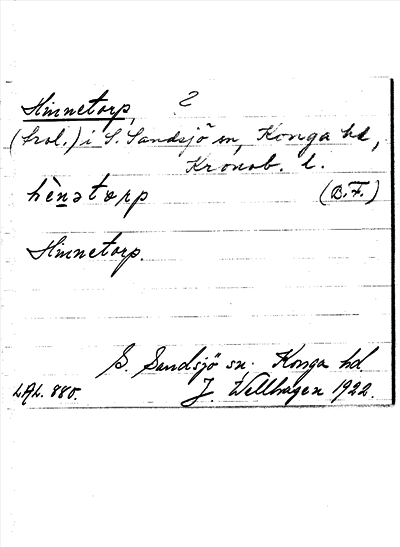 Hinnetorp, 2
(krol.) i S. Sandsjö sn, Konga hd,
Kronob. l.
hènətorp (B.F.)
Hinnetorp.
S. Sandsjö sn. Konga hd.
LAL. 880. J. Wellhagen 1922.